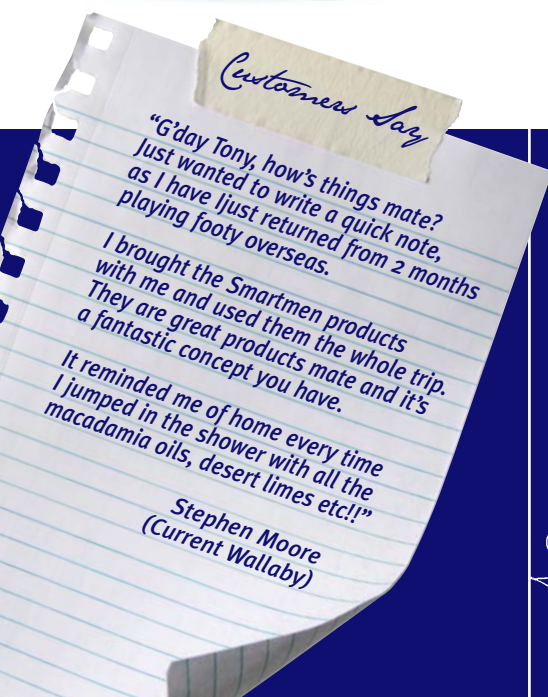 Customers Say
“G’day Tony, how’s things mate?
Just wanted to write a quick note,
as I have Ijust returned from 2 months
playing footy overseas.
I brought the Smartmen products
with me and used them the whole trip.
They are great products mate and it’s
a fantastic concept you have.
It reminded me of home every time
I jumped in the shower with all the
macadamia oils, desert limes etc!!”
Stephen Moore
(Current Wallaby)